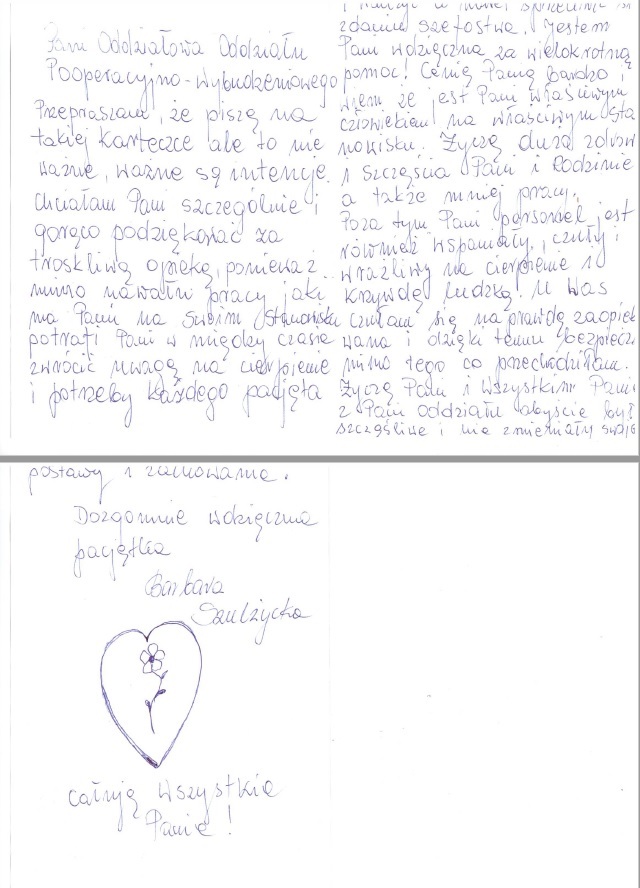 Pani Oddziałowa Oddziału
Pooperacyjno - wybudzeniowego
Przepraszam, że piszę na
takiej karteczce ale to nie
ważne, ważne są intencje.
Chciałam Pani szczególnie i
gorąco podziękować za
troskliwą opiekę, ponieważ
mimo nawału pracy jaki
ma Pani na Swoim Stanowisku
potrafi Pani w między czasie
zwrócić uwagę na cierpienie
i potrzeby każdego pacjęta
zdaniu szefostwa. Jestem
Pani wdzięczna za wielokrotną
pomoc! Cenię Panią bardzo i
wiem że jest Pani właściwym
człowiekiem na właściwym sta
nowisku. Życzę dużo zdrow
i szczęścia Pani i Rodzinie
a także mniej pracy.
Poza tym Pani personel jest
również wspaniały, czuły i
wrażliwy na cierpienie i
krzywdę ludzką. U Was
czułam się naprawdę zaopiek
wana i dzięki temu bezpieczn
mimo tego co przechodziłam.
Życzę Pani i wszystkim Pani
z Pani oddziału abyście był
szczęśliwe i nie zmieniały swoje
postawy i zachowania.
Dozgonnie wdzięczna
pacjętka
Barbara
Szulżycka
całuję wszystkie
Panie!